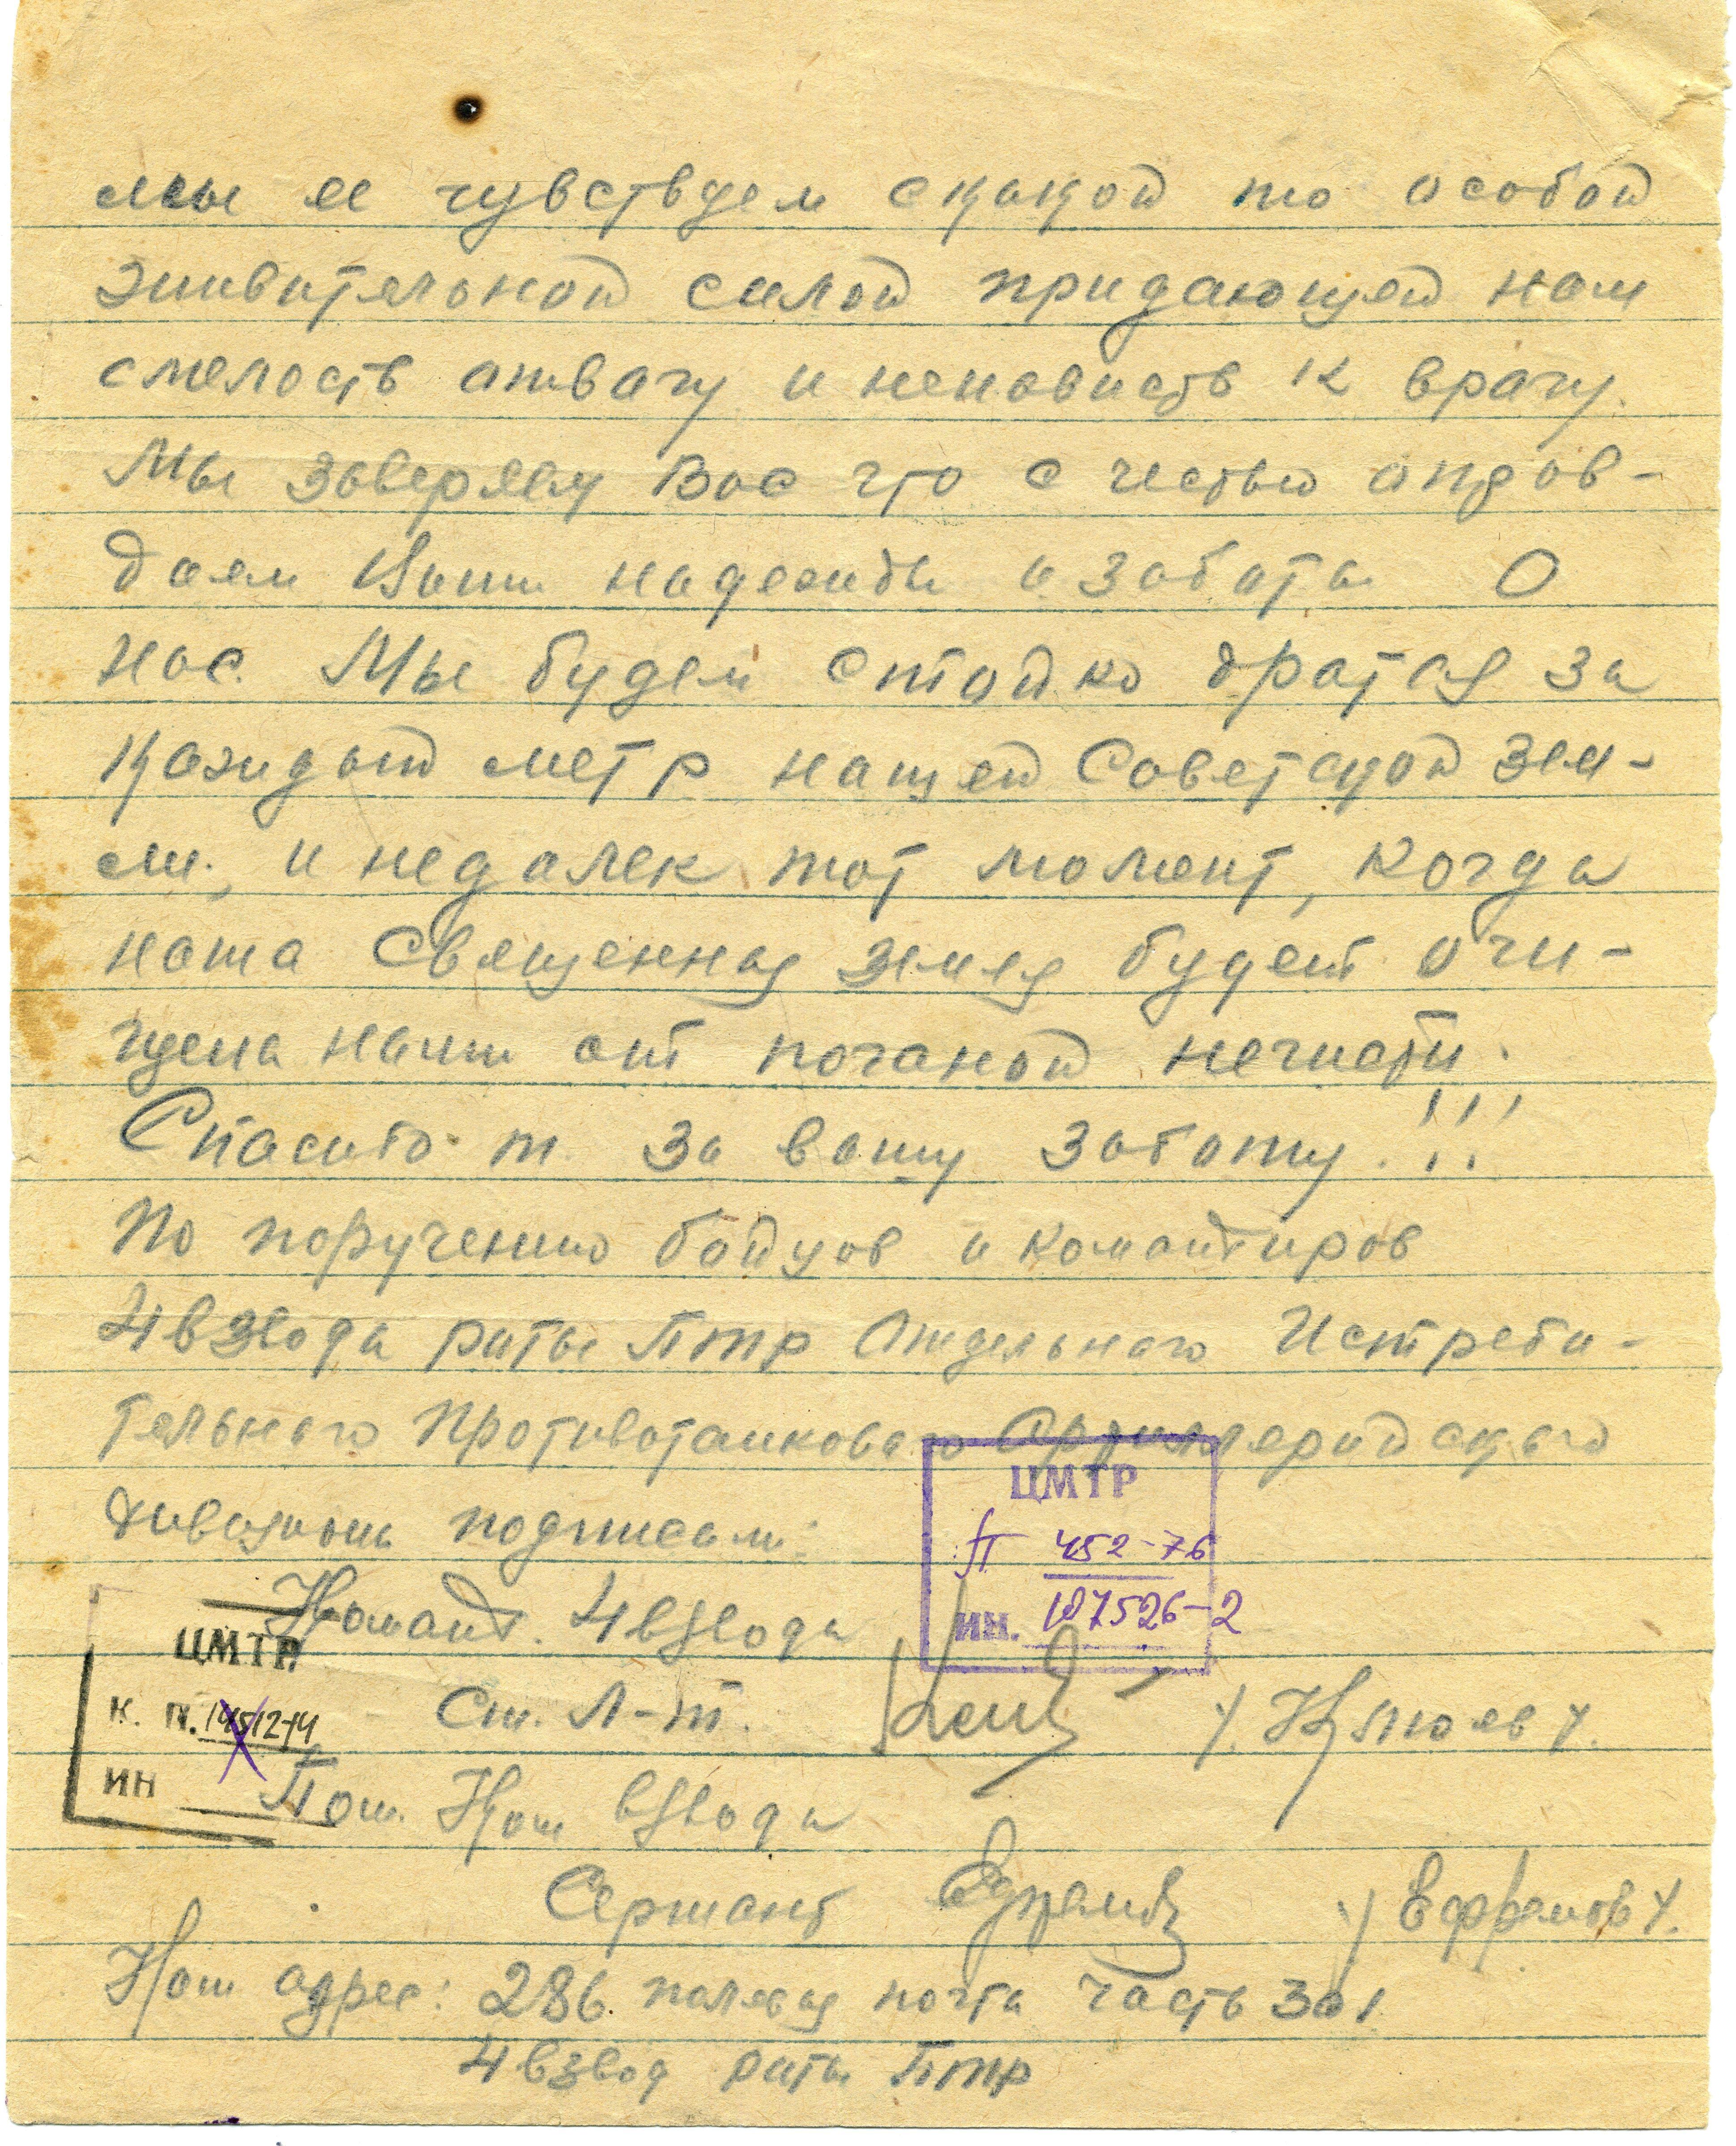 мы ее чувствуем скакой то особой
живительной силой придающей нам
смелость отвагу и ненависть к врагу.
Мы заверяем Вас что с честью оправ-
даем Ваши надежды и заботы О
нас. Мы будем стойко дратся за
каждый метр нашей Советской зем-
ли, и недалек тот момент, когда
наша Священная земля будет очи-
щена нами от поганой нечисти.
Спасибо т. За вашу заботу.!!!
По поручению бойцов и командиров
4 взвода роты ПТР Отдельного Истреби-
тельного Противотанкового Артиллерийского
дивизиона подписали:
Команд. 4 взвода
Ст. Л-т.
Пом. Ком взвода
Сержант /Ефремов/.
Наш адрес: 286 полевая почта часть 301
4 взвод роты ПТР
ЦМТР
П 452-76
ИН. 107526-2
ЦМТР.
К. П.
ИН